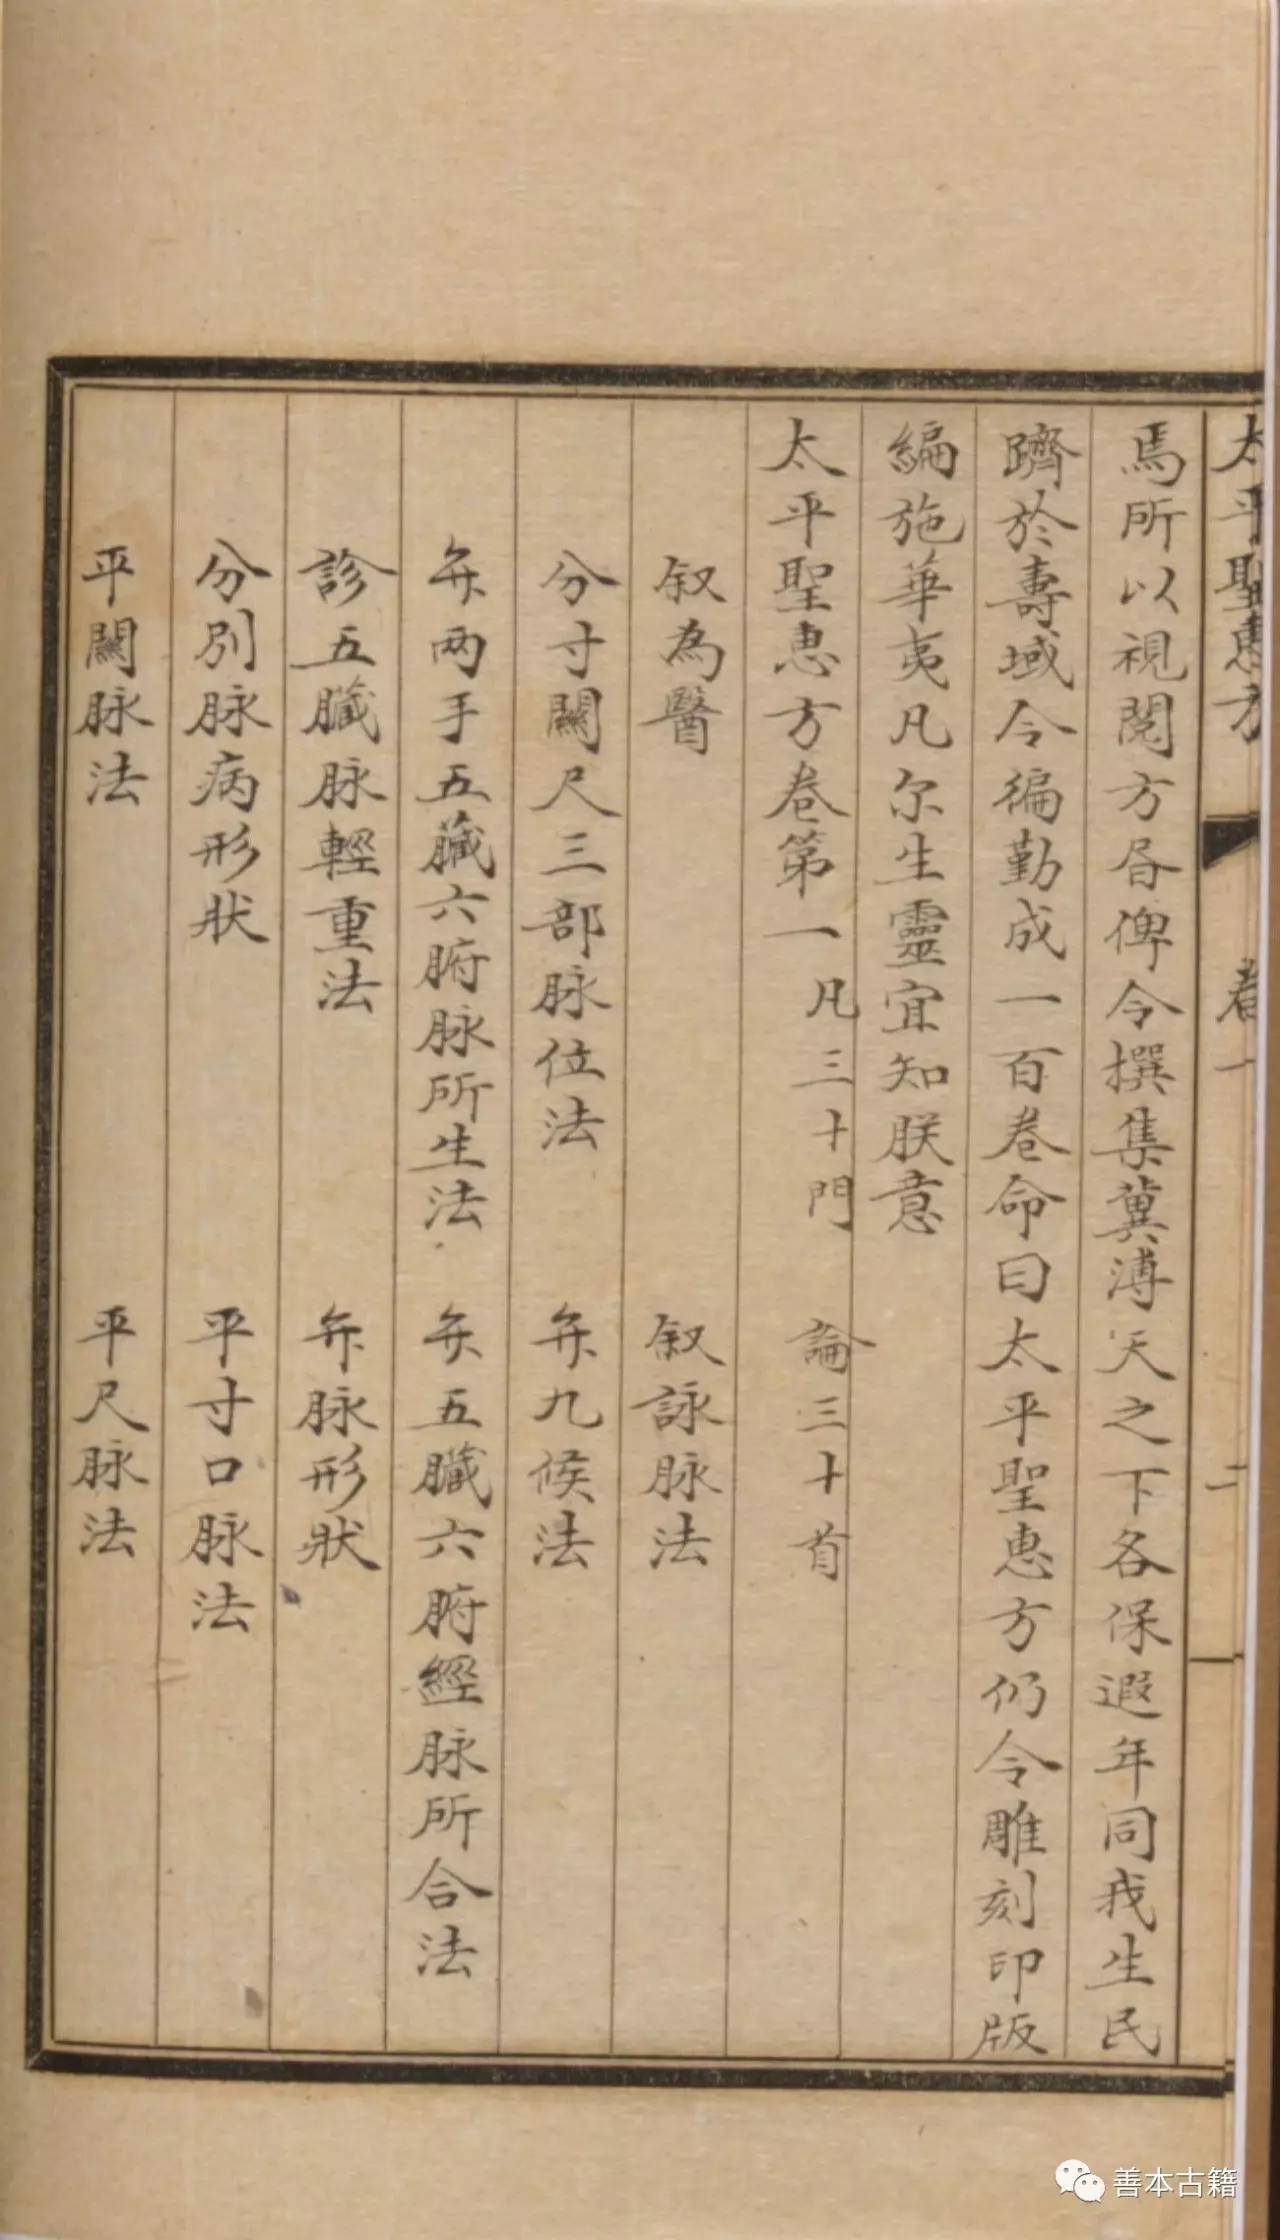 太平聖惠方 卷一 二
焉所以視閱方昏俾令撰集冀溥天之下各保遐年同我生民
躋於壽域今編勤成一百卷命曰太平聖惠方仍令雕刻印版
編施華夷凡尔生靈宜知朕意
太平聖惠方卷第一 凡三十門 論三十首
叙為醫 叙詠脉法
分寸關尺三部脉位法 弁九候法
弁兩手五臟六腑脉所生法 弁五臟六腑經脉所合法
診五臟脉輕重法 弁脉形狀
分別脉病形狀 平寸口脉法
平關脉法 平尺脉法
善本古籍